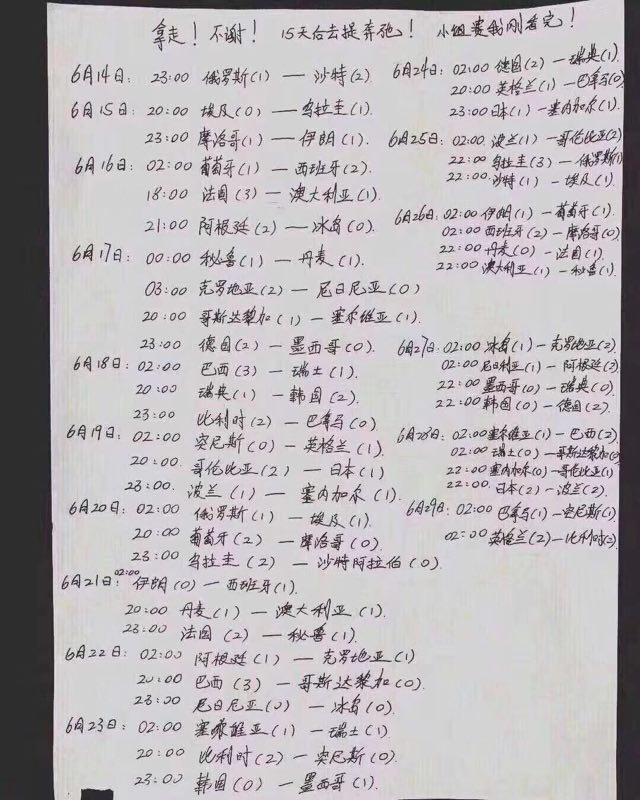 拿走！不谢！ 15天后去提奔驰！ 小组赛我刚看完！
6月14日： 23:00 俄罗斯(1) — 沙特(2)
6月15日： 20:00 埃及(0) — 乌拉圭(1).
23:00 摩洛哥(1) — 伊朗(1).
6月16日： 02:00 葡萄牙(1) — 西班牙(2).
18:00 法国(3) — 澳大利亚(1).
21:00 阿根廷(2) — 冰岛(0).
6月17日： 00:00 秘鲁(1) — 丹麦(1).
03:00 克罗地亚(2) — 尼日尼亚(0)
20:00 哥斯达黎加(1) — 塞尔维亚(1).
23:00 德国(2) — 墨西哥(0).
6月18日： 02:00 巴西(3) — 瑞士(1).
20:00 瑞典(1) — 韩国(2).
23:00 比利时(2) — 巴拿马(0)
6月19日： 02:00 突尼斯(0) — 英格兰(1).
20:00. 哥伦比亚(2) — 日本(1)
23:00. 波兰(1) — 塞内加尔(1).
6月20日： 02:00 俄罗斯(1) — 埃及(1).
20:00 葡萄牙(2) — 摩洛哥(0).
23:00 乌拉圭(2) — 沙特阿拉伯(0).
6月21日： 02:00 伊朗(0) — 西班牙(1).
20:00 丹麦(1) — 澳大利亚(1).
23:00 法国(2) — 秘鲁(1).
6月22日： 02:00 阿根廷(1) — 克罗地亚(1)
20:00 巴西(3) — 哥斯达黎加(0).
23:00 尼日尼亚(0) — 冰岛(0).
6月23日： 02:00 塞尔维亚(1) — 瑞士(1).
20:00 比利时(2) — 突尼斯(0).
23:00 韩国(0) — 墨西哥(1).
6月24日： 02:00 德国(2) — 瑞典(1).
20:00 英格兰(1) — 巴拿马(0)
23:00 日本(1) — 塞内加尔(1).
6月25日： 02:00. 波兰(1) — 哥伦比亚(2)
22:00 乌拉圭(3) — 俄罗斯(1)
22:00. 沙特(1) — 埃及(1).
6月26日： 02:00 伊朗(1) — 葡萄牙(1).
02:00 西班牙(2) — 摩洛哥(0)
22:00 丹麦(0) — 法国(1)
22:00 澳大利亚(1) — 秘鲁(1).
6月27日： 02:00 冰岛(1) — 克罗地亚(2).
02:00 尼日利亚(1) — 阿根廷(3)
22:00 墨西哥(0) — 瑞典(0).
22:00 韩国(0) — 德国(2).
6月28日： 02:00 塞尔维亚(1) — 巴西(2)
02:00 瑞士(0) — 哥斯达黎加
22:00 塞内加尔(0) — 哥伦比亚(1)
22:00. 日本(2) — 波兰(2).
6月29日： 02:00 巴拿马(1) — 突尼斯(1).
02:00 英格兰(2) — 比利时(2).